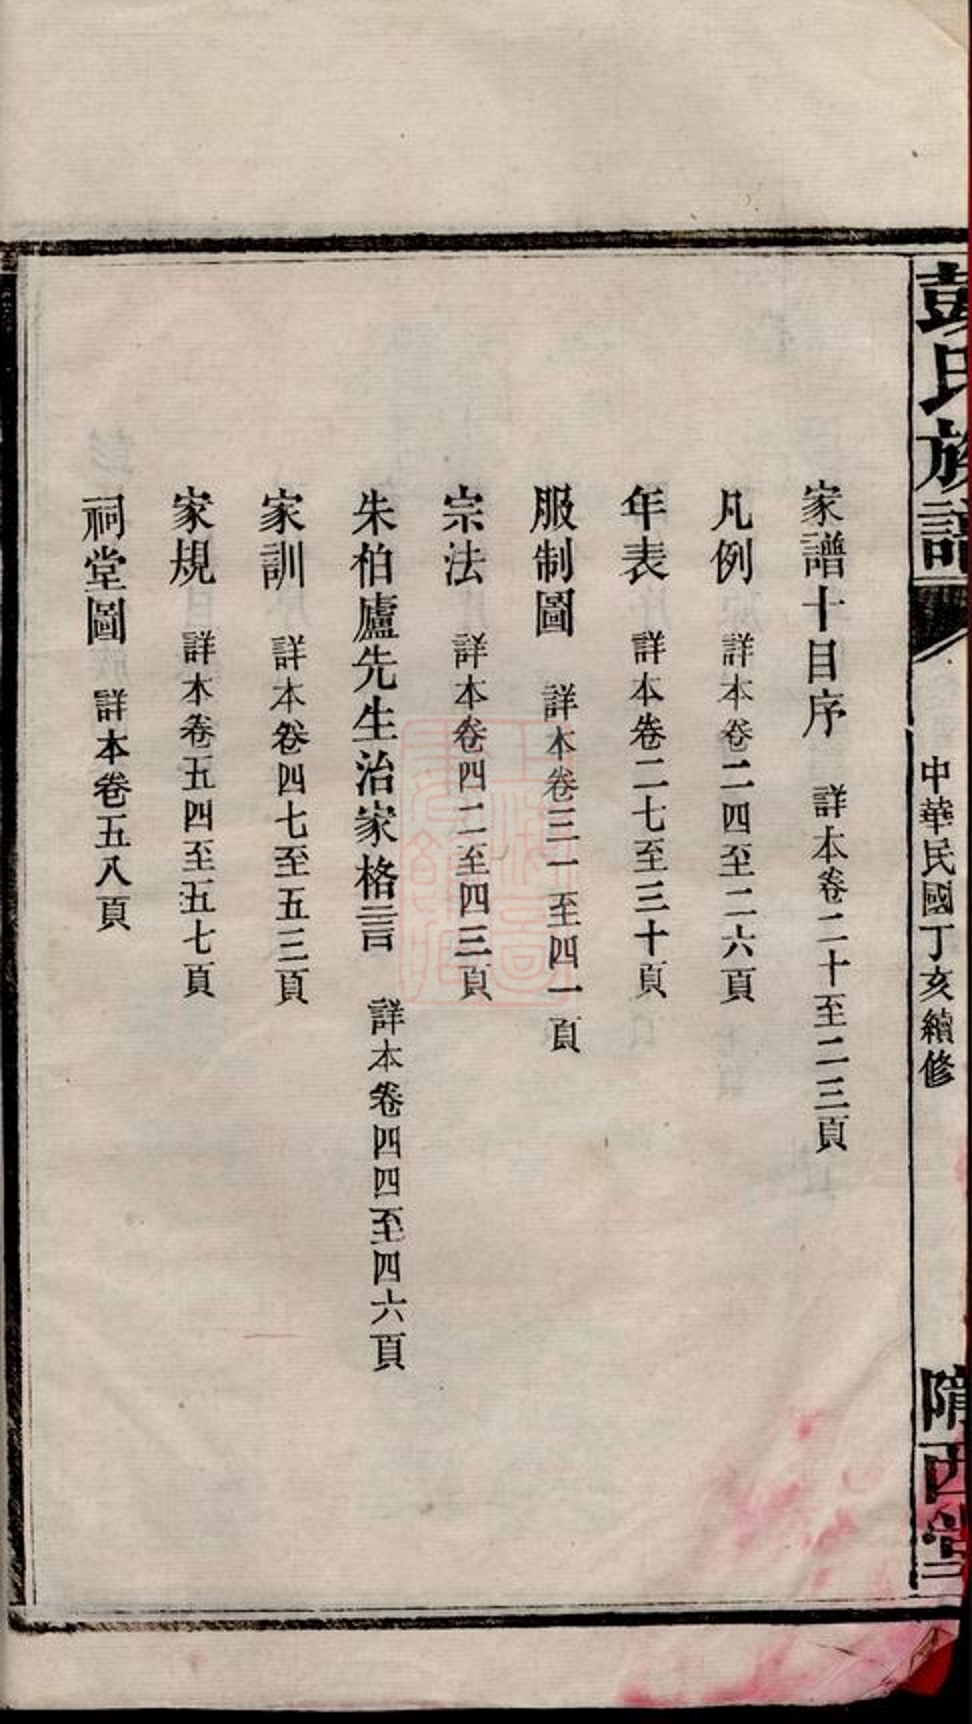 彭氏族譜
中華民國丁亥續修
隋西堂
家譜十目序　詳本卷二十至二三頁
凡例　詳本卷二四至二六頁
年表　詳本卷二七至三十頁
服制圖　詳本卷三一至四一頁
宗法　詳本卷四二至四三頁
朱柏廬先生治家格言　詳本卷四四至四六頁
家訓　詳本卷四七至五三頁
家規　詳本卷五四至五七頁
祠堂圖　詳本卷五八頁